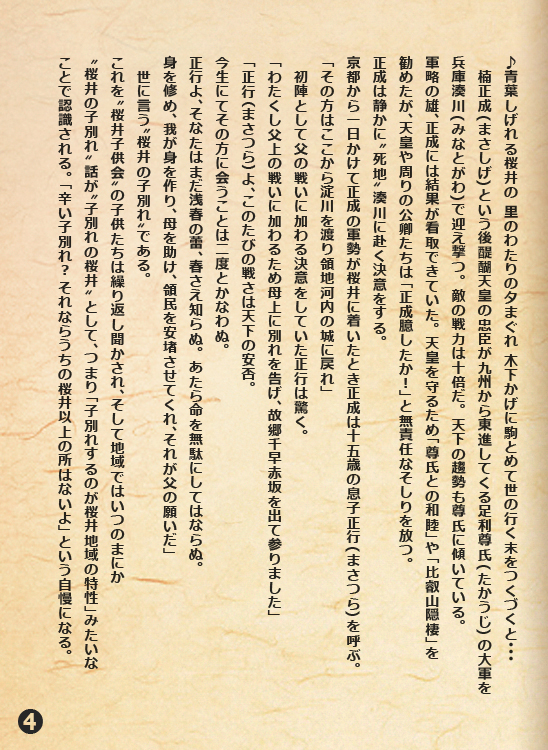 ♪青葉しげれる桜井の 里のわたりの夕まぐれ 木下かげに駒とめて世の行く末をつくづくと・・・
楠正成(まさしげ)という後醍醐天皇の忠臣が九州から東進してくる足利尊氏(たかうじ)の大軍を
兵庫湊川(みなとがわ)で迎え撃つ。敵の戦力は十倍だ。天下の趨勢も尊氏に傾いている。
軍略の雄、正成には結果が看取できていた。天皇を守るため「尊氏との和睦」や「比叡山隠棲」を
勧めたが、天皇や周りの公卿たちは「正成臆したか!」と無責任なそしりを放つ。
正成は静かに〝死地〟湊川に赴く決意をする。
京都から一日かけて正成の軍勢が桜井に着いたとき正成は十五歳の息子正行(まさつら)を呼ぶ。
「その方はここから淀川を渡り領地河内の城に戻れ」
初陣として父の戦いに加わる決意をしていた正行は驚く。
「わたくし父上の戦いに加わるため母上に別れを告げ、故郷千早赤坂を出て参りました」
「正行(まさつら)よ、このたびの戦さは天下の安否。
今生にてその方に会うことは二度とかなわぬ。
正行よ、そなたはまだ浅春の蕾、春さえ知らぬ。あたら命を無駄にしてはならぬ。
身を修め、我が身を作り、母を助け、領民を安堵させてくれ、それが父の願いだ」
世に言う〝桜井の子別れ〟である。
これを〝桜井子供会〟の子供たちは繰り返し聞かされ、そして地域ではいつのまにか
〝桜井の子別れ〟話が〝子別れの桜井〟として、つまり「子別れするのが桜井地域の特性」みたいな
ことで認識される。「辛い子別れ?それならうちの桜井以上の所はないよ」という自慢になる。
4